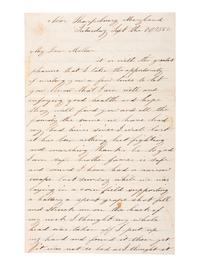 Near Sharpsburg Maryland
Saturday Sept the 20th 1862
My Dear Mother
it is with the greatest
pleasure that I take the opportunity
of writing you a few lines to let
you know that I am well and
enjoying good health and hope
they will find you and all the
family the same we have had
my hard times since I wrote last
it has been nothing but fighting
and marching thanks be to god
I am safe father James is safe
and sound I have had a narrow
escape last Wensday while we was
laying in a corn field supporting
a battery a spent grape shot fell
and struck me on the back of
my neck I thought my whole
head was taken off I put up
my hand and found it there yet
it was not so bad as I thought it